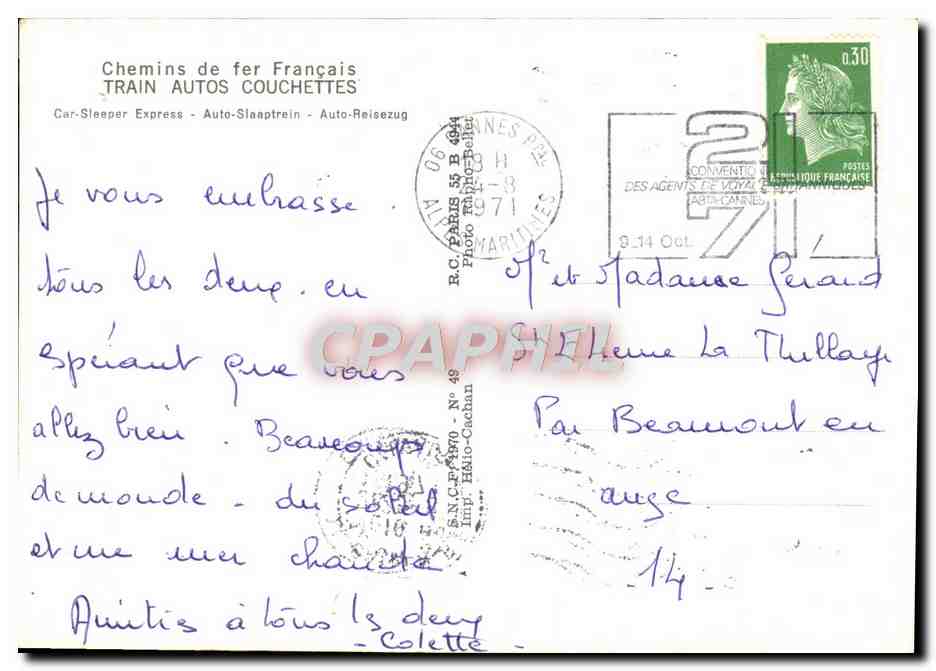 Chemins de fer Français
TRAIN AUTOS COUCHETTES
Car-Sleeper Express - Auto-Slaaptrein - Auto-Reisezug
Je vous embrasse.
tous les deux. en
espérant que vous
allez bien. Beaucoup
de monde - du soleil
et une mer chaude
Amitiés à tous les deux
- Colette -
S.N.C.F. 1970 - N° 49 R.C. PARIS 55 B 4944
Imp. Hélio-Cachan Photo Rapho-Bellet
06 CANNES Pal
8 H
4-8
1971
ALPES MARITIMES
0,30
POSTES
REPUBLIQUE FRANÇAISE
21
CONVENTION
DES AGENTS DE VOYAGE BRITANNIQUES
ABTA-CANNES
71
9_14 Oct.
Mr et Madame Gerard
St Etienne La Thillaye
Par Beaumont en
auge
-14-
CPAPHIL